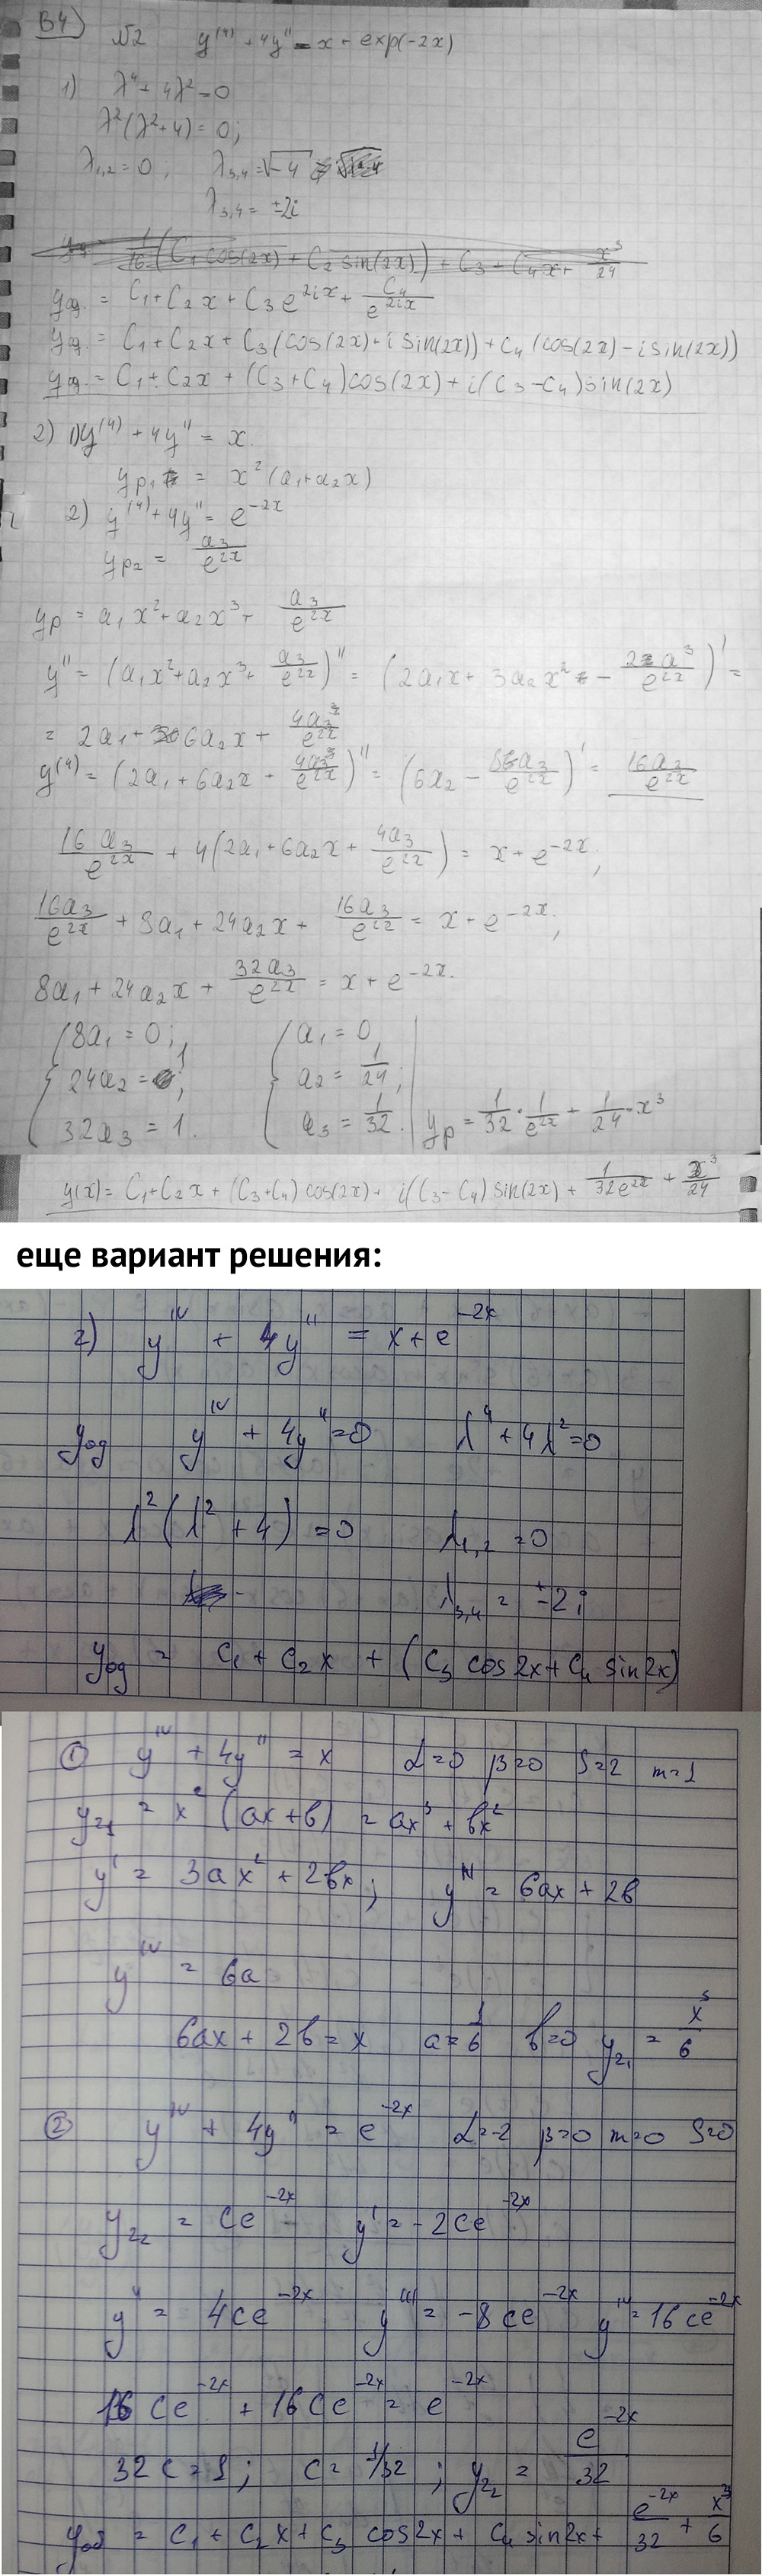 В4)
№2 y⁽⁴⁾ + 4y'' = x + exp(-2x)
1) λ⁴ + 4λ² = 0
λ²(λ² + 4) = 0;
λ₁,₂ = 0; λ₃,₄ = √-4
λ₃,₄ = ±2i
1/16 (C₁ cos(2x) + C₂ sin(2x)) + C₃ + C₄x + x³/24
yод = C₁ + C₂x + C₃e^(2ix) + C₄/e^(2ix)
yод = C₁ + C₂x + C₃(cos(2x) + i sin(2x)) + C₄(cos(2x) - i sin(2x))
yод = C₁ + C₂x + (C₃ + C₄)cos(2x) + i(C₃ - C₄)sin(2x)
2) 1) y⁽⁴⁾ + 4y'' = x
yp₁ = x²(a₁ + a₂x)
2) y⁽⁴⁾ + 4y'' = e^(-2x)
yp₂ = a₃/e^(2x)
yp = a₁x² + a₂x³ + a₃/e^(2x)
y'' = (a₁x² + a₂x³ + a₃/e^(2x))'' = (2a₁x + 3a₂x² - 2a₃/e^(2x))' =
= 2a₁ + 6a₂x + 4a₃/e^(2x)
y⁽⁴⁾ = (2a₁ + 6a₂x + 4a₃/e^(2x))'' = (6a₂ - 8a₃/e^(2x))' = 16a₃/e^(2x)
16a₃/e^(2x) + 4(2a₁ + 6a₂x + 4a₃/e^(2x)) = x + e^(-2x);
16a₃/e^(2x) + 8a₁ + 24a₂x + 16a₃/e^(2x) = x + e^(-2x);
8a₁ + 24a₂x + 32a₃/e^(2x) = x + e^(-2x).
{ 8a₁ = 0; { a₁ = 0,
24a₂ = 1; a₂ = 1/24;
32a₃ = 1. a₃ = 1/32. | yp = 1/32 · 1/e^(2x) + 1/24 · x³
y(x) = C₁ + C₂x + (C₃ + C₄)cos(2x) + i(C₃ - C₄)sin(2x) + 1/32e^(2x) + x³/24
еще вариант решения:
2) yᴵⱽ + 4y'' = x + e^(-2x)
yод yᴵⱽ + 4y'' = 0 λ⁴ + 4λ² = 0
λ²(λ² + 4) = 0 λ₁,₂ = 0
λ₃,₄ = ±2i
yод = C₁ + C₂x + (C₃ cos2x + C₄ sin2x)
① yᴵⱽ + 4y'' = x α=0 β=0 S=2 m=1
yz₁ = x²(ax + b) = ax³ + bx²
y' = 3ax² + 2bx; y'' = 6ax + 2b
yᴵⱽ = 6a
6ax + 2b = x a = 1/6 b=0 yz₁ = x³/6
② yᴵⱽ + 4y'' = e^(-2x) α=-2 β=0 m=0 S=0
yz₂ = Ce^(-2x) y' = -2Ce^(-2x)
y'' = 4Ce^(-2x) y''' = -8Ce^(-2x) yᴵⱽ = 16Ce^(-2x)
16Ce^(-2x) + 16Ce^(-2x) = e^(-2x)
32C = 1; C = 1/32; yz₂ = e^(-2x)/32
yоб = C₁ + C₂x + C₃ cos2x + C₄ sin2x + e^(-2x)/32 + x³/6